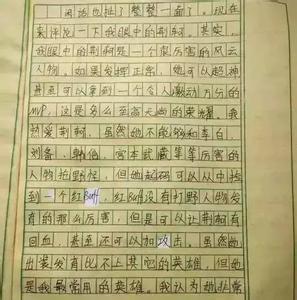 闲话也扯了整整一面了。现在
来评论一下我眼中的荆轲。其实，
我眼中的荆轲是一个很厉害的风云
人物。如果发挥正常，她可以超神
甚至可以拿到一个令人激动万分的
MVP，这是多么至高无尚的荣耀。我
热爱荆轲，虽然他不能够和李白、
刘备、韩信、宫本武藏等等厉害的
人物抢野怪，但他起码可以从中捡
到一个红Buff，红Buff没有打野人物发
育的那么厉害，但是可以让荆轲有
回血，甚至还可以加攻击。虽然她
出装发育比不上其它的英雄，但他
是我最常用的英雄。我认为她非常